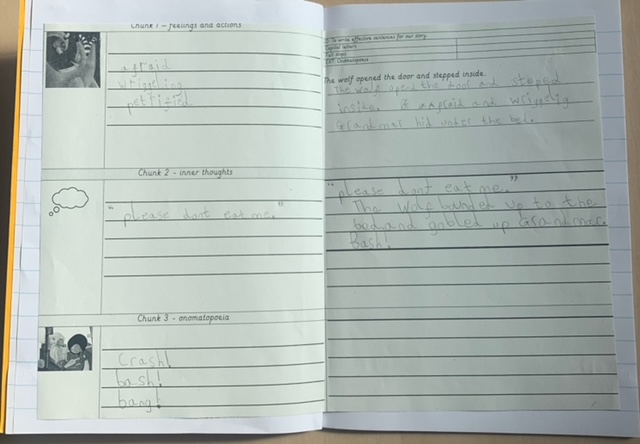 Chunk 1 - feelings and actions
afraid
wriggling
petrified
Chunk 2 - inner thoughts
"please dont eat me."
Chunk 3 - onomatopoeia
Crash!
bash!
bang!
To write effective sentences for our story.
Capital letters
Full stops
EXT: Onomatopoeia
The wolf opened the door and stepped inside.
The wolf opend the door and stepped
inside. and wriggelig
Grandmar hid under the bed.
"please dont eat me."
The wolf bounded up to the
bed and gobled up Grandmar.
bash!